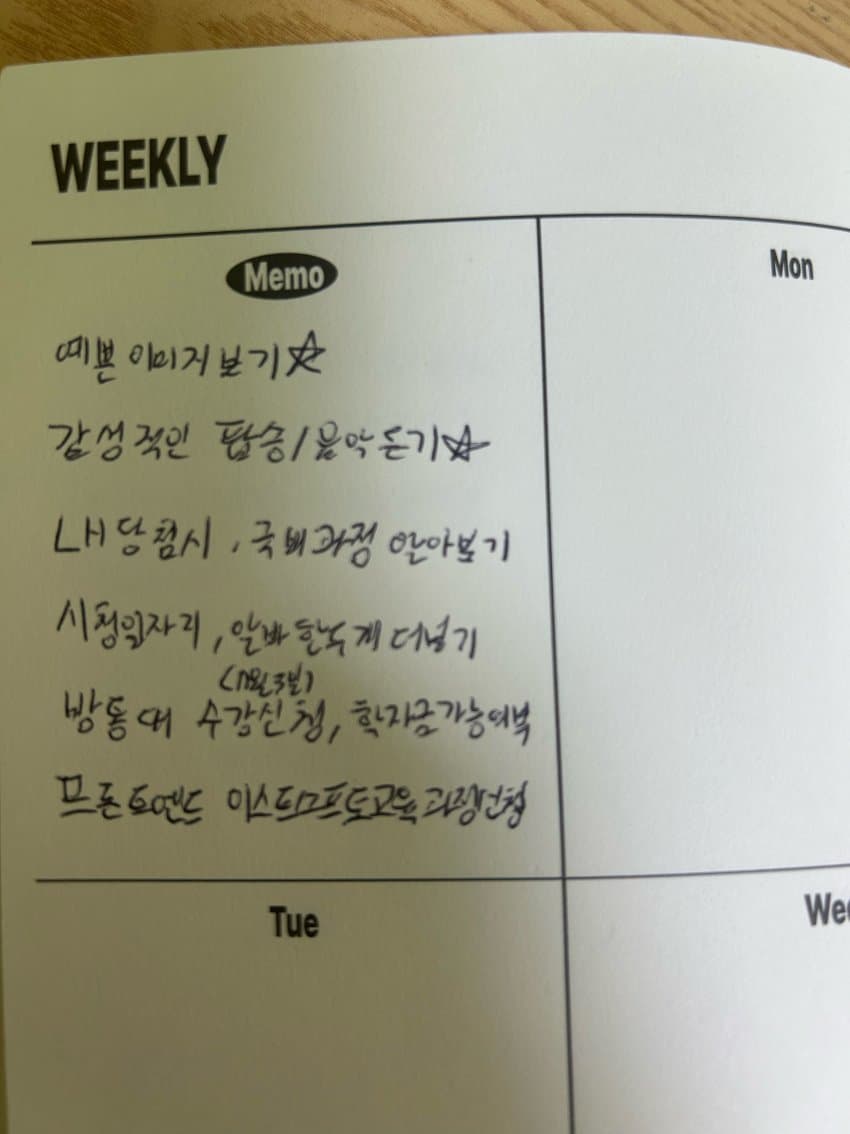 WEEKLY
Memo
Mon
예쁜 이미지 보기☆
감성적인 팝송/음악듣기☆
LH당첨시, 국비과정 알아보기
시청일자리, 알바 한두개 더넣기
방통대 수강신청, 학자금가능여부
프론트엔드 이스트소프트교육과정신청
Tue